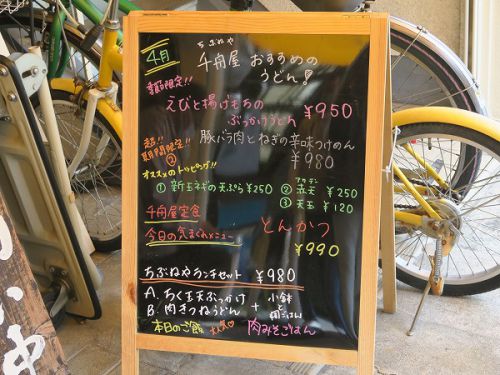 4月
ちぶねや
千舟屋 おすすめの
うどん!
季節限定!!
えびと揚げもちの
ぶっかけうどん ¥950
超!!
期間限定!!
豚バラ肉とねぎの辛味つけめん
¥980
オススメのトッピング!!
① 新玉ネギの天ぷら ¥250
② 赤天 ¥250
③ 天玉 ¥120
千舟屋定食
今日の気まぐれメニュー
とんかつ
¥990
ちぶねやランチセット ¥980
A. ちく玉天ぶっかけ
B. 肉きつねうどん
+ 小鉢
と
ごはん
本日のご飯
肉みそごはん